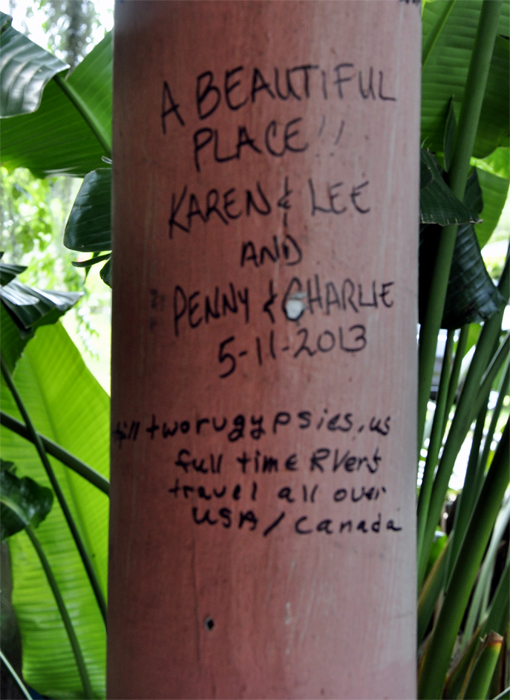 A BEAUTIFUL
PLACE!!
KAREN & LEE
AND
PENNY & CHARLIE
5-11-2013
tworvgypsies.us
full time RVers
travel all over
USA/Canada